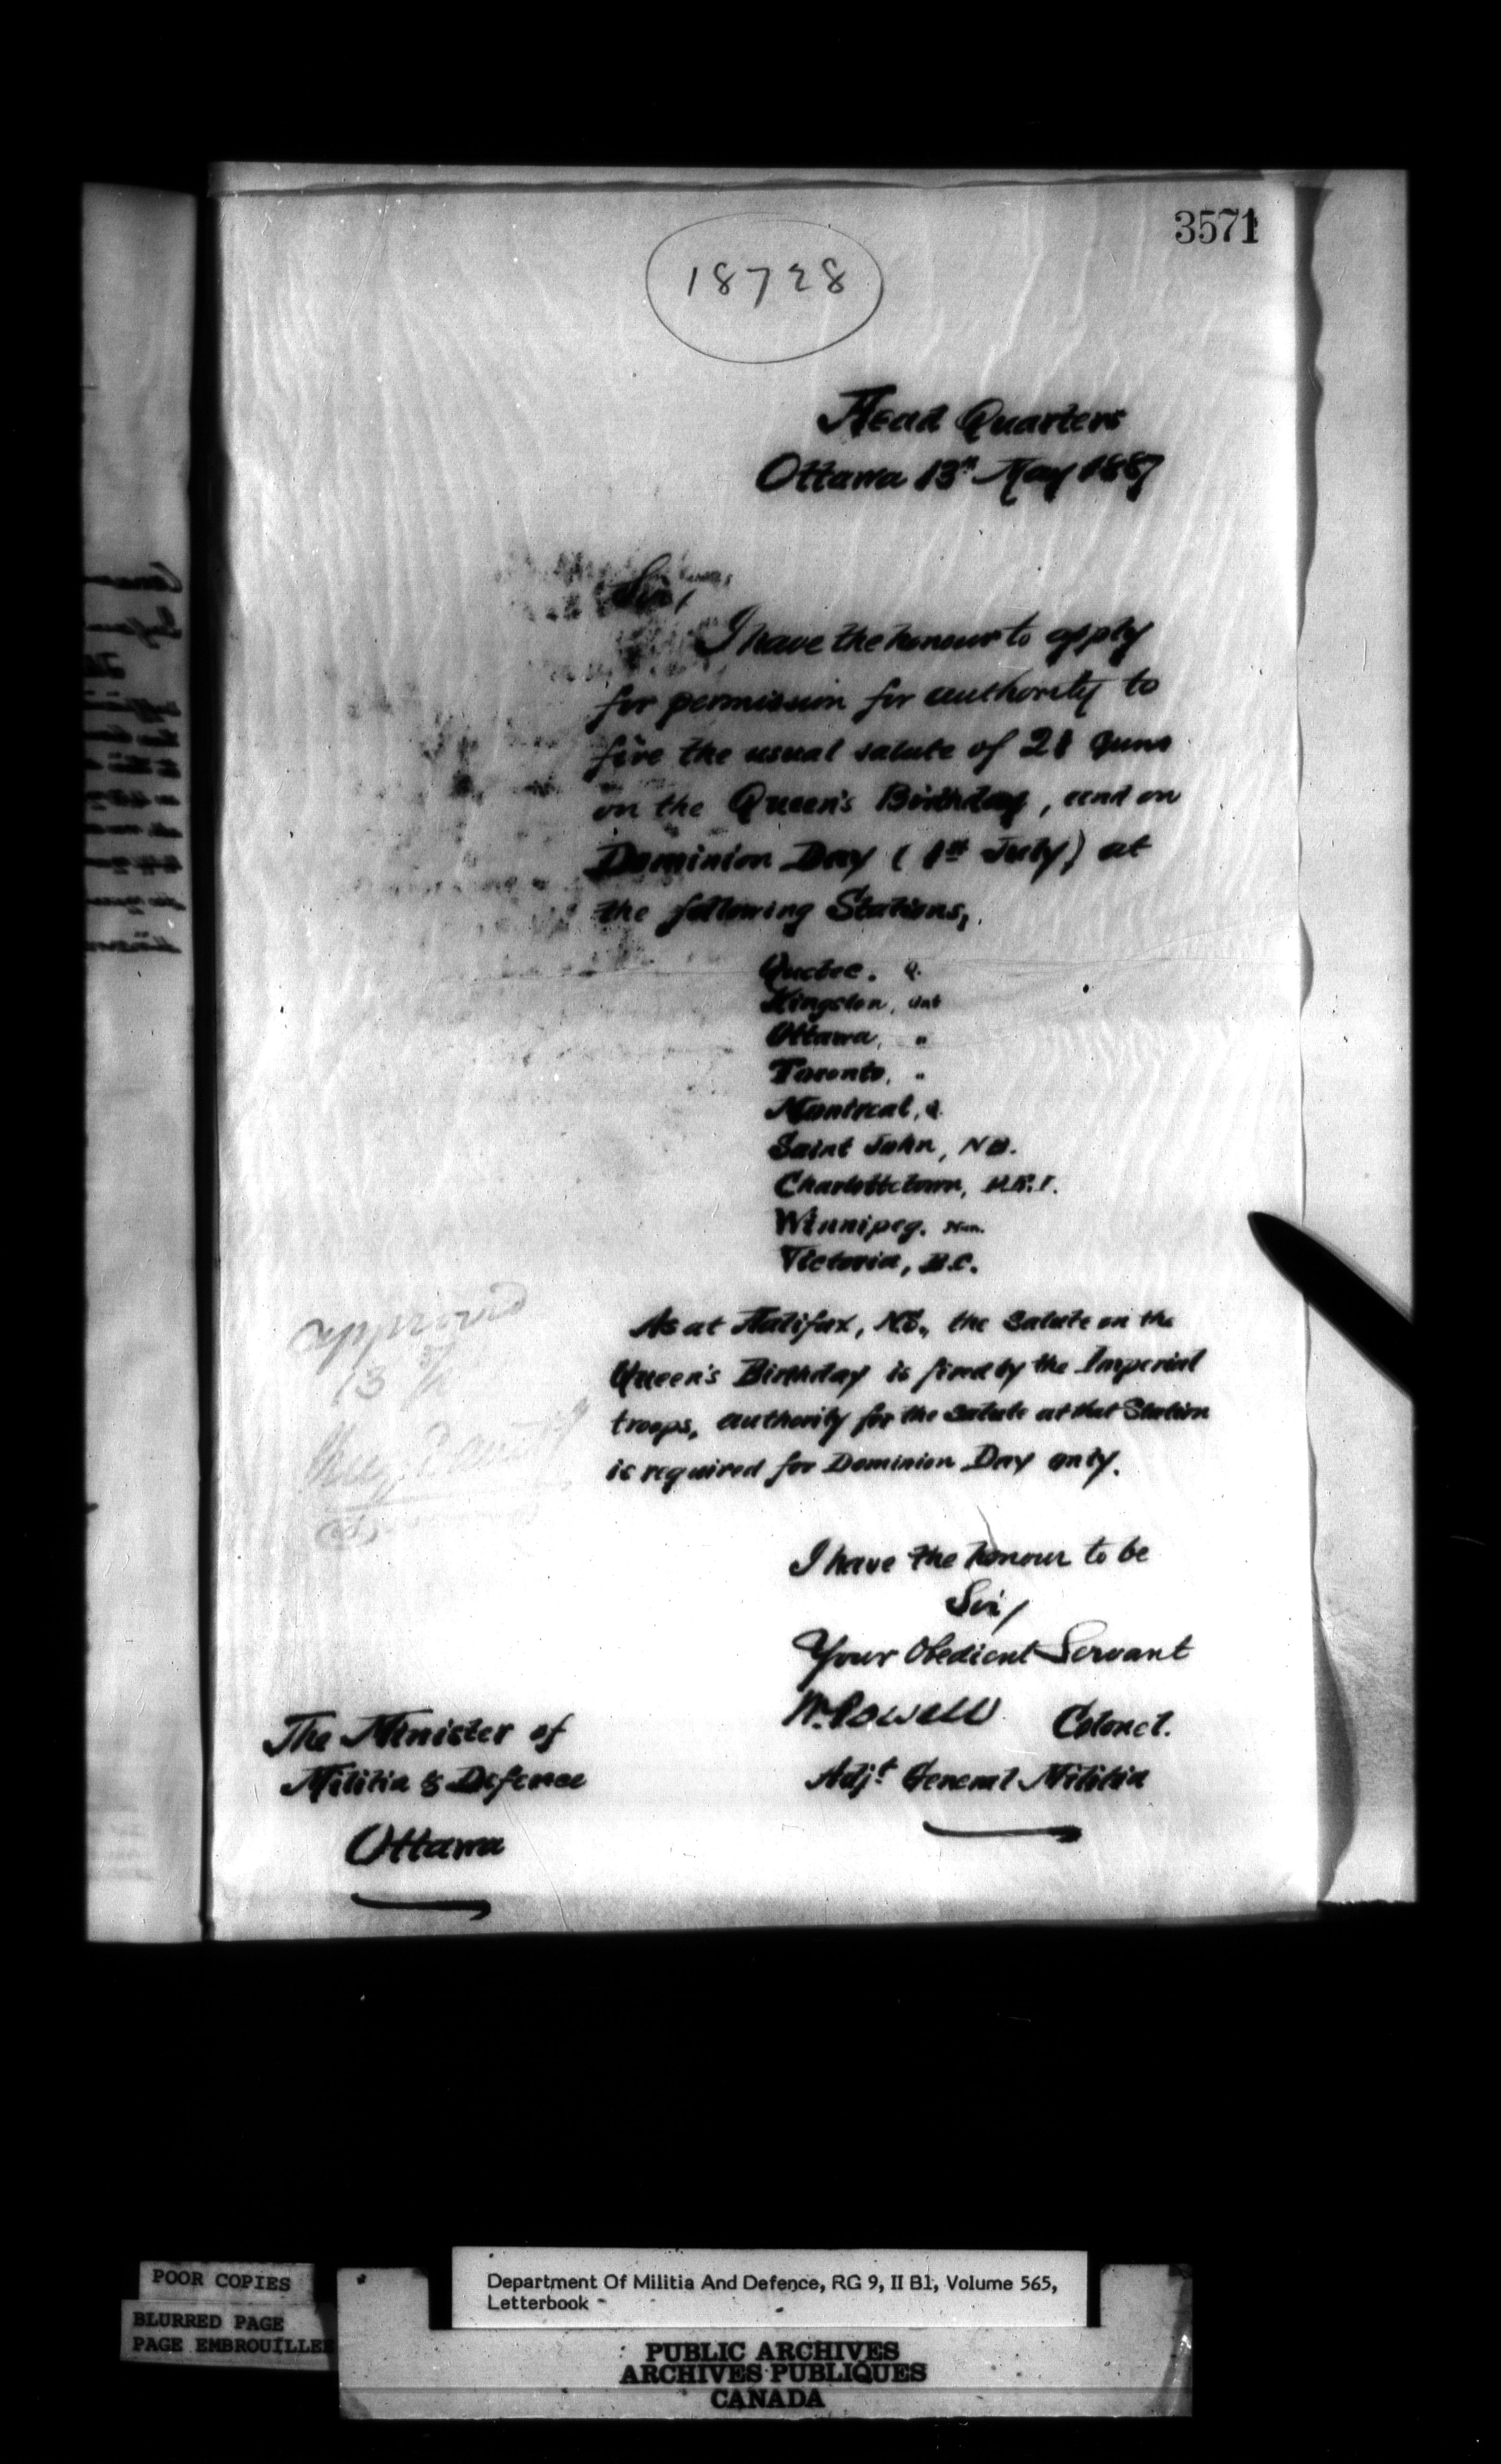 3571
18728
Head Quarters
Ottawa 13th May 1887
Sir,
I have the honour to apply
for permission for authority to
fire the usual salute of 21 guns
on the Queen's Birthday, and on
Dominion Day (1st July) at
the following Stations,
Quebec. Q.
Kingston, Ont
Ottawa, "
Toronto, "
Montreal, Q.
Saint John, NB.
Charlottetown, P.E.I.
Winnipeg. Man.
Victoria, B.C.
As at Halifax, N.S., the salute on the
Queen's Birthday is fired by the Imperial
troops, authority for the salute at that Station
is required for Dominion Day only.
approved
13
I have the honour to be
Sir,
Your Obedient Servant
W. Powell Colonel.
Adjt General Militia
The Minister of
Militia & Defence
Ottawa
POOR COPIES
BLURRED PAGE
PAGE EMBROUILLEE
Department Of Militia And Defence, RG 9, II B1, Volume 565,
Letterbook
PUBLIC ARCHIVES
ARCHIVES PUBLIQUES
CANADA